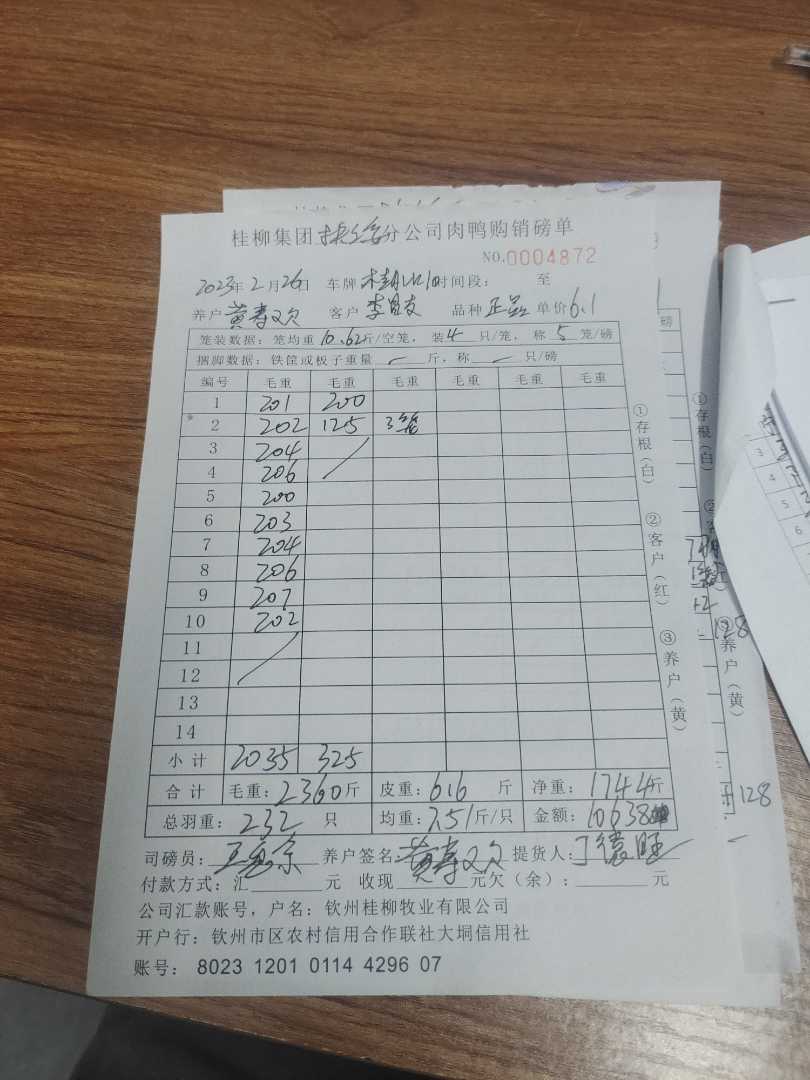 桂柳集团 分公司肉鸭购销磅单
NO.0004872
2023年2月26日 车牌 时间段: 至
养户 黄寿双 客户 李昌友 品种 正品 单价6.1
笼装数据: 笼均重10.62斤/空笼, 装4只/笼, 称5笼/磅
捆脚数据: 铁筐或板子重量 — 斤, 称 — 只/磅
编号 毛重 毛重 毛重 毛重 毛重 毛重
1 201 200
2 202 125 3笼
3 204
4 206
5 200
6 203
7 204
8 206
9 207
10 202
11
12
13
14
小计 2035 325
合计 毛重: 2360斤 皮重: 616 斤 净重: 1744斤
总羽重: 232 只 均重: 7.51斤/只 金额: 10638
司磅员: 养户签名 黄寿双 提货人: 丁德旺
付款方式: 汇 元 收现 元欠(余): 元
公司汇款账号, 户名: 钦州桂柳牧业有限公司
开户行: 钦州市区农村信用合作联社大垌信用社
账号: 8023 1201 0114 4296 07
①存根(白)
②客户(红)
③养户(黄)